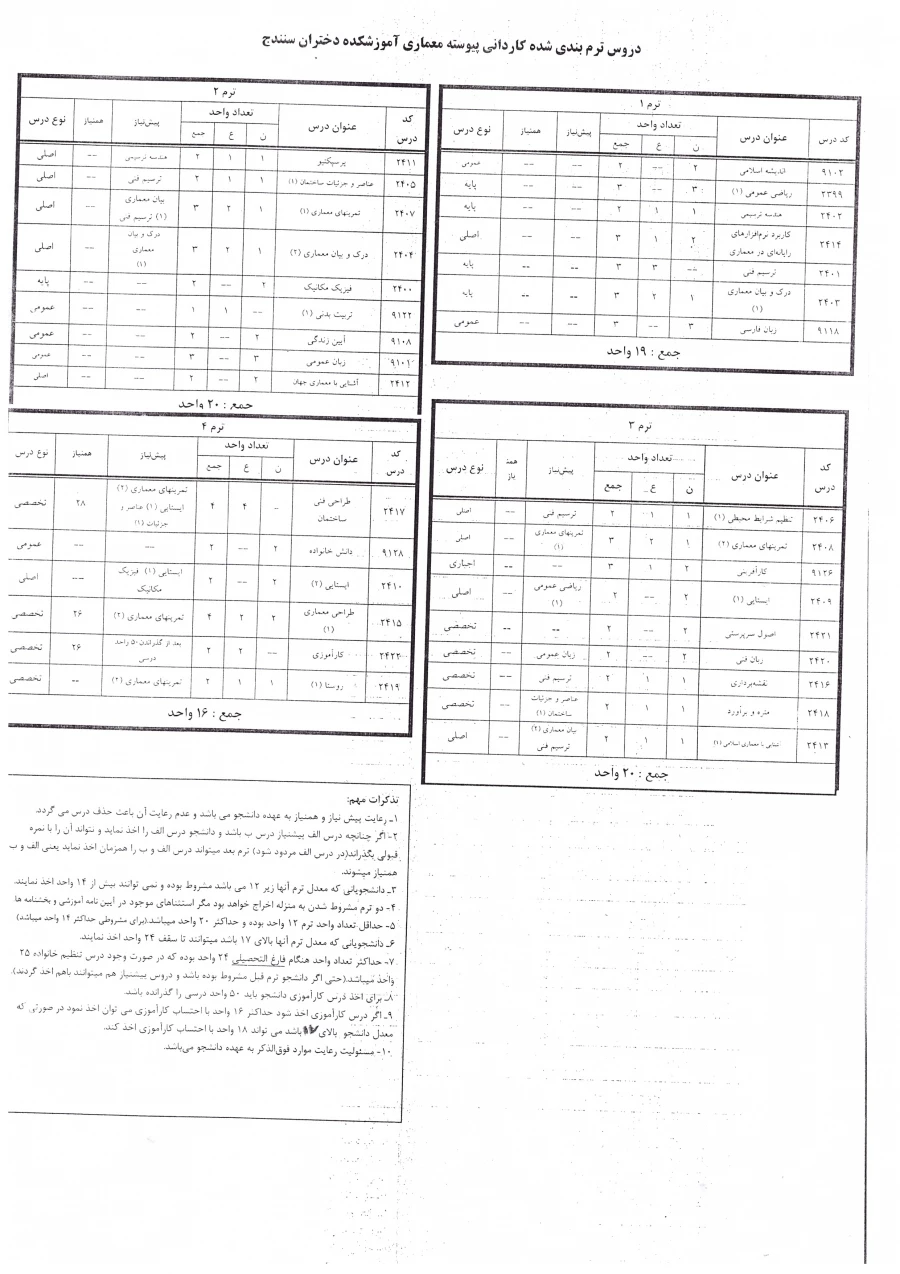 دروس ترم بندی شده کاردانی پیوسته معماری آموزشکده دختران سنندج
ترم ۱
کد درس عنوان درس تعداد واحد پیش‌نیاز همنیاز نوع درس
ن ع جمع
۹۱۰۲ اندیشه اسلامی ۲ -- ۲ -- -- عمومی
۲۳۹۹ ریاضی عمومی (۱) ۳ -- ۳ -- -- پایه
۲۴۰۲ هندسه ترسیمی ۱ ۱ ۲ -- -- پایه
۲۴۱۴ کاربرد نرم‌افزارهای ۲ ۱ ۳ -- -- اصلی
رایانه‌ای در معماری
۲۴۰۱ ترسیم فنی -- ۳ ۳ -- -- پایه
۲۴۰۳ درک و بیان معماری ۱ ۲ ۳ -- -- پایه
(۱)
۹۱۱۸ زبان فارسی ۳ -- ۳ -- -- عمومی
جمع : ۱۹ واحد
ترم ۲
کد
درس عنوان درس تعداد واحد پیش‌نیاز همنیاز نوع درس
ن ع جمع
۲۴۱۱ پرسپکتیو ۱ ۱ ۲ هندسه ترسیمی -- اصلی
۲۴۰۵ عناصر و جزئیات ساختمان (۱) ۱ ۱ ۲ ترسیم فنی -- اصلی
۲۴۰۷ تمرینهای معماری (۱) ۱ ۲ ۳ بیان معماری -- اصلی
(۱) ترسیم فنی
۲۴۰۴ درک و بیان معماری (۲) ۱ ۲ ۳ درک و بیان -- اصلی
معماری
(۱)
۲۴۰۰ فیزیک مکانیک ۲ -- ۲ -- -- پایه
۹۱۲۲ تربیت بدنی (۱) -- ۱ ۱ -- -- عمومی
۹۱۰۸ آیین زندگی ۲ -- ۲ -- -- عمومی
۹۱۰۱ زبان عمومی ۳ -- ۳ -- -- عمومی
۲۴۱۲ آشنایی با معماری جهان ۲ -- ۲ -- -- اصلی
جمع : ۲۰ واحد
ترم ۳
کد
درس عنوان درس تعداد واحد پیش‌نیاز همن
یاز نوع درس
ن ع جمع
۲۴۰۶ تنظیم شرایط محیطی (۱) ۱ ۱ ۲ ترسیم فنی -- اصلی
۲۴۰۸ تمرینهای معماری (۲) ۱ ۲ ۳ تمرینهای معماری -- اصلی
(۱)
۹۱۲۶ کارآفرینی ۲ ۱ ۳ -- -- اجباری
۲۴۰۹ ایستایی (۱) ۲ -- ۲ ریاضی عمومی -- اصلی
(۱)
۲۴۲۱ اصول سرپرستی ۲ -- ۲ -- -- تخصصی
۲۴۲۰ زبان فنی ۲ -- ۲ زبان عمومی -- تخصصی
۲۴۱۶ نقشه‌برداری ۱ ۱ ۲ ترسیم فنی -- تخصصی
۲۴۱۸ متره و برآورد ۱ ۱ ۲ عناصر و جزئیات -- تخصصی
ساختمان (۱)
۲۴۱۳ شنایی با معماری اسلامی (۱) ۱ ۱ ۲ بیان معماری (۲) -- اصلی
ترسیم فنی
جمع : ۲۰ واحد
ترم ۴
کد
درس عنوان درس تعداد واحد پیش‌نیاز همنیاز نوع درس
ن ع جمع
۲۴۱۷ طراحی فنی - ۴ ۴ تمرینهای معماری (۲) ۲۸ تخصصی
ساختمان ایستایی (۱) عناصر و
جزئیات (۱)
۹۱۲۸ دانش خانواده ۲ -- ۲ -- -- عمومی
۲۴۱۰ ایستایی (۲) ۲ -- ۲ ایستایی (۱) فیزیک --- اصلی
مکانیک
۲۴۱۵ طراحی معماری ۲ ۲ ۴ تمرینهای معماری (۲) ۲۶ تخصصی
(۱)
۲۴۲۲ کارآموزی -- ۲ ۲ بعد از گذراندن ۵۰ واحد ۲۶ تخصصی
درسی
۲۴۱۹ روستا (۱) ۱ ۱ ۲ تمرینهای معماری (۲) -- تخصصی
جمع : ۱۶ واحد
تذکرات مهم:
۱- رعایت پیش نیاز و همنیاز به عهده دانشجو می باشد و عدم رعایت آن باعث حذف درس می گردد.
۲- اگر چنانچه درس الف پیشنیاز درس ب باشد و دانشجو درس الف را اخذ نماید و نتواند آن را با نمره
قبولی بگذراند(در درس الف مردود شود) ترم بعد میتواند درس الف و ب را همزمان اخذ نماید یعنی الف و ب
همنیاز میشوند.
۳- دانشجویانی که معدل ترم آنها زیر ۱۲ می باشد مشروط بوده و نمی توانند بیش از ۱۴ واحد اخذ نمایند.
۴- دو ترم مشروط شدن به منزله اخراج خواهد بود مگر استثناهای موجود در آیین نامه آموزشی و بخشنامه ها
۵- حداقل تعداد واحد ترم ۱۲ واحد بوده و حداکثر ۲۰ واحد میباشد.(برای مشروطی حداکثر ۱۴ واحد میباشد)
۶- دانشجویانی که معدل ترم آنها بالای ۱۷ باشد میتوانند تا سقف ۲۴ واحد اخذ نمایند.
۷- حداکثر تعداد واحد هنگام فارغ التحصیلی ۲۴ واحد بوده که در صورت وجود درس تنظیم خانواده ۲۵
واحد میباشد.(حتی اگر دانشجو ترم قبل مشروط بوده باشد و دروس پیشنیاز هم میتوانند باهم اخذ گردند).
۸- برای اخذ درس کارآموزی دانشجو باید ۵۰ واحد درسی را گذرانده باشد.
۹- اگر درس کارآموزی اخذ شود حداکثر ۱۶ واحد با احتساب کارآموزی می توان اخذ نمود در صورتی که
معدل دانشجو بالای ۱۷ باشد می تواند ۱۸ واحد با احتساب کارآموزی اخذ کند.
۱۰- مسئولیت رعایت موارد فوق‌الذکر به عهده دانشجو می‌باشد.